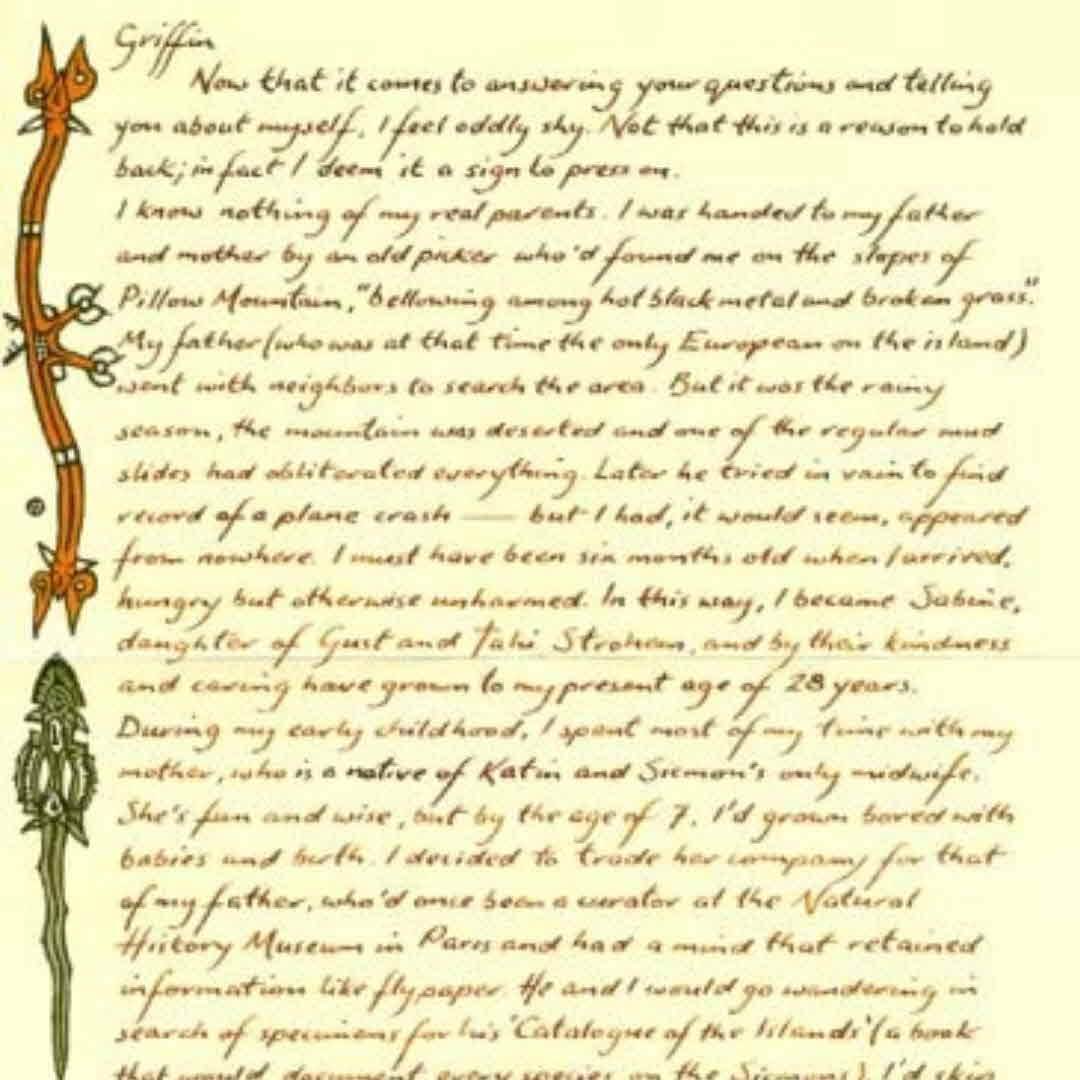 Griffin
Now that it comes to answering your questions and telling
you about myself, I feel oddly shy. Not that this is a reason to hold
back; in fact I deem it a sign to press on.
I know nothing of my real parents. I was handed to my father
and mother by an old picker who'd found me on the slopes of
Pillow Mountain, "bellowing among hot black metal and broken grass."
My father (who was at that time the only European on the island)
went with neighbors to search the area. But it was the rainy
season, the mountain was deserted and one of the regular mud
slides had obliterated everything. Later he tried in vain to find
record of a plane crash — but I had, it would seem, appeared
from nowhere. I must have been six months old when I arrived,
hungry but otherwise unharmed. In this way, I became Sabine,
daughter of Gust and Tahi Strohem, and by their kindness
and caring have grown to my present age of 28 years.
During my early childhood, I spent most of my time with my
mother, who is a native of Katin and Sicmon's only midwife.
She's fun and wise, but by the age of 7, I'd grown bored with
babies and birth. I decided to trade her company for that
of my father, who'd once been a curator at the Natural
History Museum in Paris and had a mind that retained
information like flypaper. He and I would go wandering in
search of specimens for his 'Catalogue of the Islands' (a book
that would document every species on the Sicmons). I'd skip